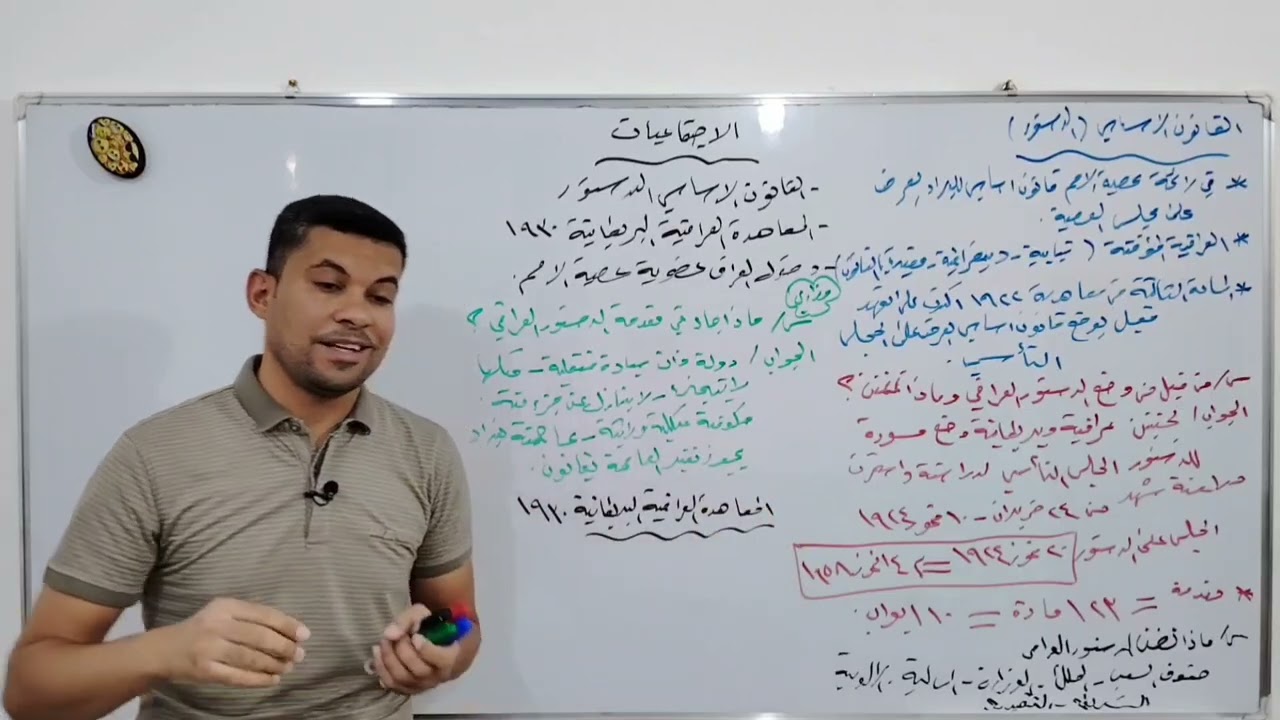 القانون الاساسي (الدستور)
* في لائحة عصبة الامم قانون اساسي للبلاد لعرض
على مجلس العصبة.
* العراقية المؤقتة (نيابية - ديمقراطية - مقيدة بالقانون)
* المادة الثالثة من معاهدة ١٩٢٢ اكدت على تعهد
فيصل بوضع قانون اساسي يعرض على المجلس
التأسيسي.
س/ من قبل من وضع الدستور العراقي وماذا تضمن؟
الجواب/ لجنتين عراقية وبريطانية وضع مسودة
للدستور المجلس التأسيسي لدراسة واستمرت
مناقشة شهد من ٢٤ حزيران - ١٠ تموز ١٩٢٤
المجلس على الدستور
٢٠ تموز ١٩٢٤ = ١٤ تموز ١٩٥٨
* مقدمة = ١٢٣ مادة = ١٠ ابواب.
س/ ماذا تضمن الدستور العراقي
حقوق الشعب - الملك - الوزارة - المالية -
الاجتماعيات
- القانون الاساسي الدستور
- المعاهدة العراقية البريطانية ١٩٣٠
- دخول العراق عضوية عصبة الامم.
س/ ماذا جاء في مقدمة الدستور العراقي؟
وزاري
الجواب/ دولة ذات سيادة مستقلة - ملكها
لا يتجزأ - لا يتنازل عن جزء منه
حكومته ملكية وراثية - عاصمته بغداد
يجوز تغيير العاصمة بقانون.
المعاهدة العراقية البريطانية ١٩٣٠